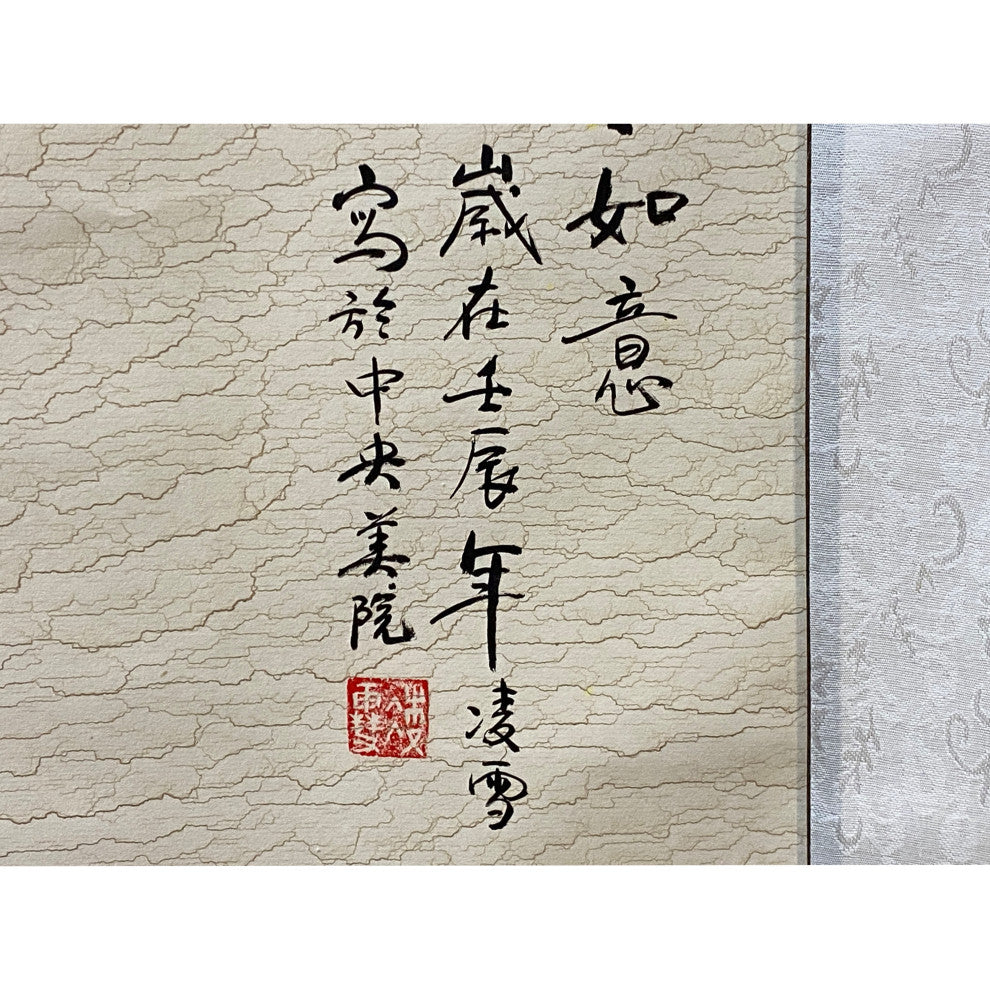 如意
歲在壬辰年凌雪
寫於中央美院